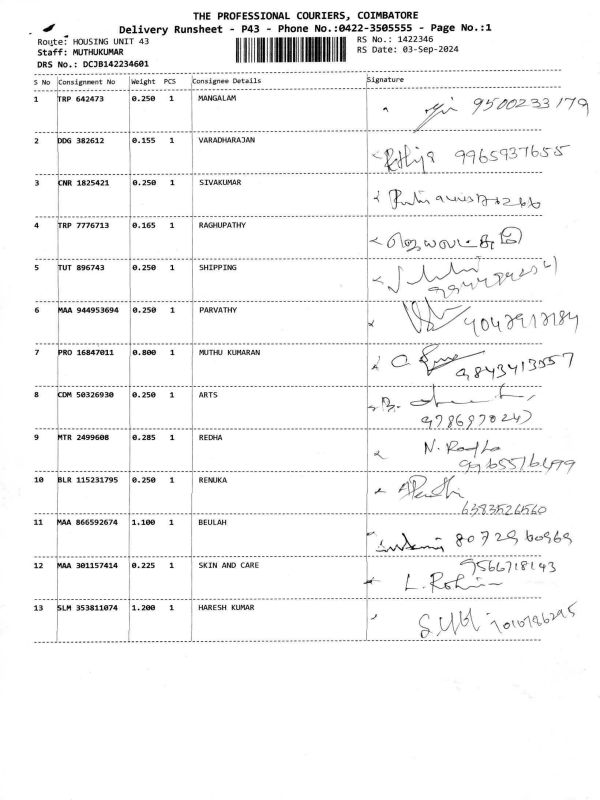 THE PROFESSIONAL COURIERS, COIMBATORE
Delivery Runsheet - P43 - Phone No.:0422-3505555 - Page No.:1
Route: HOUSING UNIT 43 RS No.: 1422346
Staff: MUTHUKUMAR RS Date: 03-Sep-2024
DRS No.: DCJB142234601
S No Consignment No Weight PCS Consignee Details Signature
1 TRP 642473 0.250 1 MANGALAM 9500233179
2 DDG 382612 0.155 1 VARADHARAJAN 9965937655
3 CNR 1825421 0.250 1 SIVAKUMAR
4 TRP 7776713 0.165 1 RAGHUPATHY
5 TUT 896743 0.250 1 SHIPPING
6 MAA 944953694 0.250 1 PARVATHY
7 PRO 16847011 0.800 1 MUTHU KUMARAN
9843413557
8 CDM 50326930 0.250 1 ARTS
9786970247
9 MTR 2499608 0.285 1 REDHA N. Radha
10 BLR 115231795 0.250 1 RENUKA
6383526560
11 MAA 866592674 1.100 1 BEULAH 8072960969
12 MAA 301157414 0.225 1 SKIN AND CARE 9566718143
L. Rohini
13 SLM 353811074 1.200 1 HARESH KUMAR